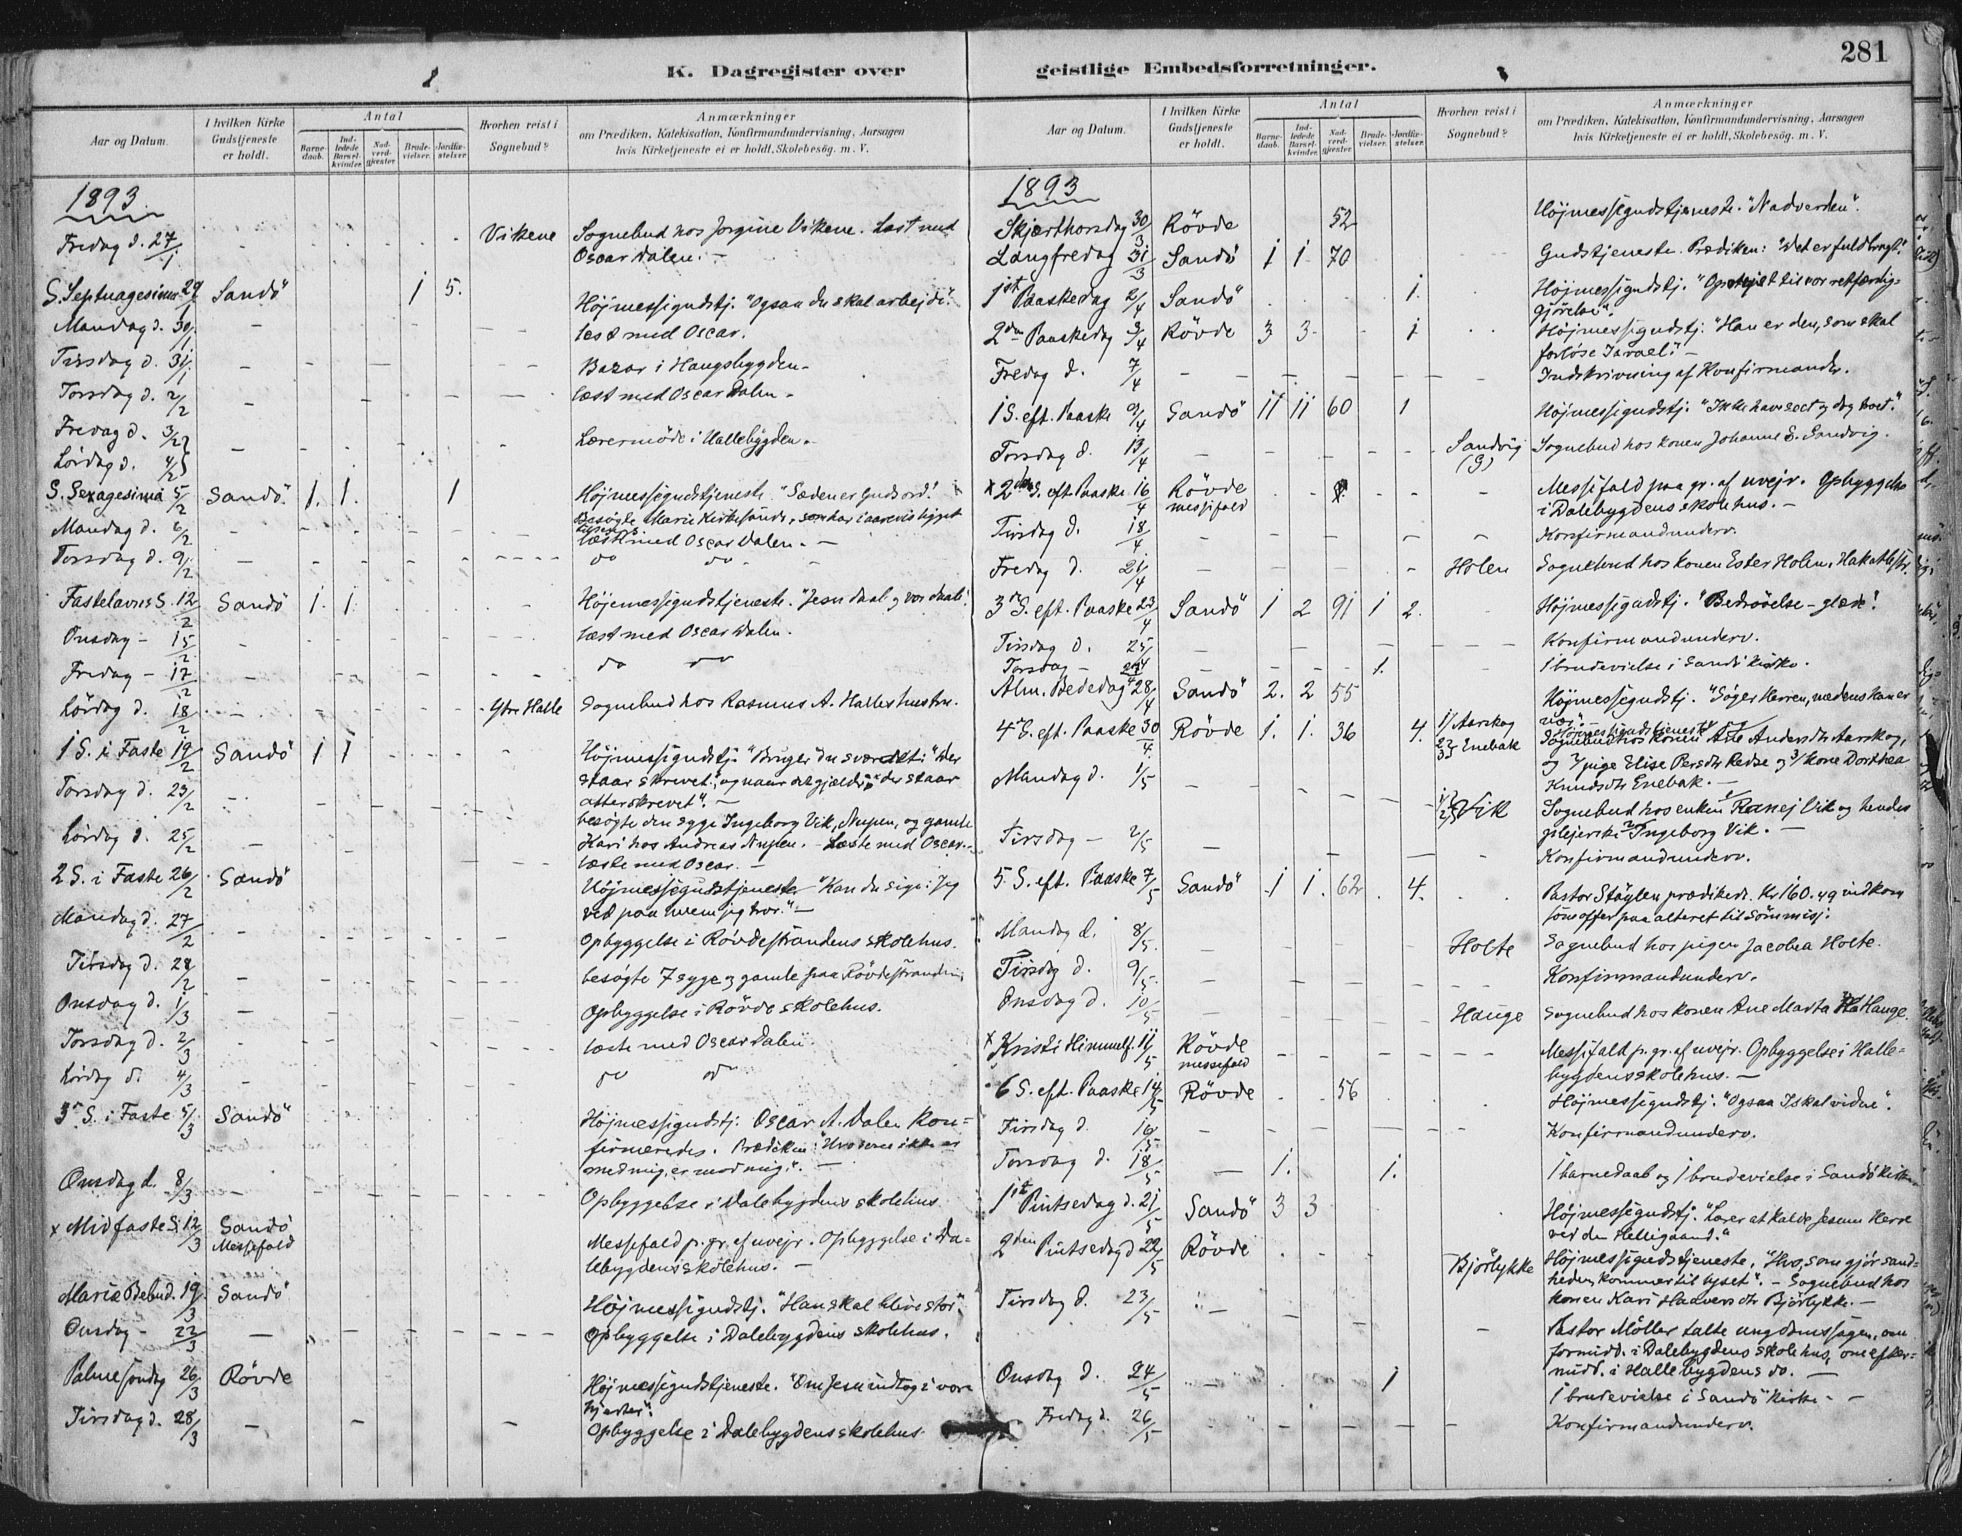 281
K. Dagregister over
geistlige Embedsforretninger.
Aar og Datum.
I hvilken Kirke Gudstjeneste er holdt.
Antal
Barne-daab.
Ind-ledede Barsel-kvinder.
Nad-verd-gjester
Brude-vielser.
Jordfæ-stelser
Hvorhen reist i Sognebud?
Anmærkninger
om Prædiken, Katekisation, Konfirmandundervisning, Aarsagen
hvis Kirketjeneste ei er holdt, Skolebesög. m. V.
1893
Fredag d. 27/1 Vikene Sognebud hos Jorgine Vikene. Læst med
Oscar Dalen. -
S. Septuagesima 29/1 Sandö 1 5. Höjmessigudstj. "Ogsaa du skal arbejde".
Mandag d. 30/1 - læst med Oscar.
Tirsdag d. 31/1 - Bazar i Haugsbygden -
Torsdag d. 2/2 - læst med Oscar Dalen -
Fredag d. 3/2
Lördag d. 4/2 - Lærermöde i Hallebygden -
S. Sexagesima 5/2 Sandö 1. 1. 1 Höjmessigudstjeneste. "Sæden er Guds ord."
Besögte Marie som har i aarevis ligget
Mandag d. 6/2 - læst med Oscar Dalen. -
Torsdag d. 9/2 - do do -
Fastelavns S. 12/2 Sandö 1. 1. Höjmessigudstjeneste. "Jesu daab og vor daab".
Onsdag - 15/2 - læst med Oscar Dalen.
Fredag - 17/2 - do do
Lördag d. 18/2 - Ytre Halle Sognebud hos Rasmus A. Halles hustru.
1 S. i Faste 19/2 Sandö 1 1 Höjmessigudstj. "Bruger du sværdet: "Der
staar skrevet", og naar det gjælder "der staar
atter skrevet". -
Torsdag d. 23/2 - besögte den syge Ingeborg Vik, Nupen, og gamle
Lördag d. 25/2 - Kari hos Andreas Nupen. - Læste med Oscar -
læste med Oscar. -
2 S. i Faste 26/2 Sandö Höjmessigudstjeneste "Kan du sige: Jeg
ved paa hvem jeg tror." -
Mandag d. 27/2 - Opbyggelse i Rövdestrandens skolehus.
Tirsdag d. 28/2 - besögte 7 syge og gamle paa Rövdestranden,
Onsdag d. 1/3 - Opbyggelse i Rövde skolehus.
Torsdag d. 2/3 - læste med Oscar Dalen.
Lördag d. 4/3 - do do
3 S. i Faste 5/3 Sandö Höjmessigudstj. Oscar A. Dalen kon-
firmeredes. Prædiken: "Hvo som ikke er
med mig, er mod mig". -
Onsdag d. 8/3 - Opbyggelse i Dalebygdens skolehus
x Midfaste S. 12/3 Sandö Messefald Messefald p. gr. af uvejr. Opbyggelse i Da-
lebygdens skolehus. -
Mariæ Bebud. 19/3 Sandö Höjmessigudstj. "Han skal blive stor".
Onsdag - 22/3 - Opbyggelse i Dalebygdens skolehus.
Palmesöndag 26/3 Rövde Höjmessigudstjeneste. "Om Jesu indtog i vore
hjerter".
Tirsdag d. 28/3 - Opbyggelse i Dalebygdens skolehus.
Aar og Datum.
I hvilken Kirke Gudstjeneste er holdt.
Antal
Barne-daab.
Ind-ledede Barsel-kvinder.
Nad-verd-gjester
Brude-vielser.
Jordfæ-stelser.
Hvorhen reist i Sognebud?
Anmærkninger
om Prædiken, Katekisation, Konfirmandundervisning, Aarsagen
hvis Kirketjeneste ei er holdt, Skolebesög. m. V.
1893
Skjærthorsdag 30/3 Rövde 52 Höjmessigudstjeneste. "Nadverden".
Langfredag 31/3 Sandö 1 1 70 Gudstjeneste. Prædiken: "Det er fuldbragt".
1ste Paaskedag 2/4 Sandö 1. Höjmessigudstj. "Opvejst til vor retfærdig-
gjörelse".
2den Paaskedag 3/4 Rövde 3 3 1 Höjmessigudstj. "Han er den, som skal
forlöse Israel". -
Fredag d. 7/4 - Indskrivning af Konfirmander.
1 S. eft. Paaske 9/4 Sandö 11 11 60 1 Höjmessigudstj. "Ikke have seet og dog troet."
Torsdag d. 13/4 - Sandvig (G) Sognebud hos konen Johanne E. Sandvig.
x 2den S. eft. Paaske 16/4 Rövde messefald Messefald paa gr. af uvejr. Opbyggelse
i Dalebygdens skolehus. -
Tirsdag d. 18/4 - Konfirmandunderv.
Fredag d. 21/4 - Holen Sognebud hos konen Ester Holen,
3 S. eft. Paaske 23/4 Sandö 1 2 91 1 2. Höjmessigudstj. "Bedrövelse - glæde".
Tirsdag d. 25/4 - Konfirmandunderv.
Torsdag - 27/4 - 1. 1 brudevielse i Sandö Kirke.
Alm. Bededag 28/4 Sandö 2. 2 55 Höjmessigudstj. "Söger Herren, medens han er
nær". -
4 S. eft. Paaske 30/4 Rövde 1. 1. 36 4. 1/ Aarskog 2/ 3/ Enebak Höjmessigudstjeneste
Sognebud hos konen Ane Andersdtr Aarskog,
Mandag d. 1/5 og 2/ pige Elise Persdtr Redse og 3/ kone Dorthea
Knudsdtr Enebak. -
Tirsdag - 2/5 - Vik Sognebud hos enken Ranej Vik og hendes
plejerske Ingeborg Vik. -
Konfirmandunderv.
5. S. eft. Paaske 7/5 Sandö 1 1 62 4. Pastor Stöylen prædikede. Kr 160.49 indkom
som offer paa alteret til Sömmisj.
Mandag d. 8/5 - Holte Sognebud hos pigen Jacobea Holte.
Tirsdag d. 9/5 - Konfirmandunderv.
Onsdag d. 10/5 - Hauge Sognebud hos konen Ane Marta Hauge.
x Kristi Himmelf. 11/5 Rövde messefald Messefald p. gr. af uvejr. Opbyggelse i Halle-
bygdens skolehus. -
6 S. eft. Paaske 14/5 Rövde 56 Höjmessigudstj. "Ogsaa I skal vidne".
Tirsdag d. 16/5 - Konfirmandunderv.
Torsdag d. 18/5 - 1. 1. 1 barnedaab og 1 brudevielse i Sandö kirke
1ste Pintsedag d. 21/5 Sandö 3 3 Höjmessigudstj. "Lærer at kalde Jesum Herre
ved den Helligaand."
2den Pintsedag d 22/5 Rövde Björlykke Höjmessigudstjeneste, "Hvo, som gjör sand-
heden, kommer til lyset". - Sognebud hos
konen Kari Haaversdtr Björlykke. -
Tirsdag d. 23/5 - Pastor Möller talte ungdomssagen, om
formidd. i Dalebygdens skolehus, om efter-
midd. i Hallebygdens do. -
Onsdag d. 24/5 - 1 1 brudevielse i Sandö Kirke -
Fredag d. 26/5 - Konfirmandunderv.